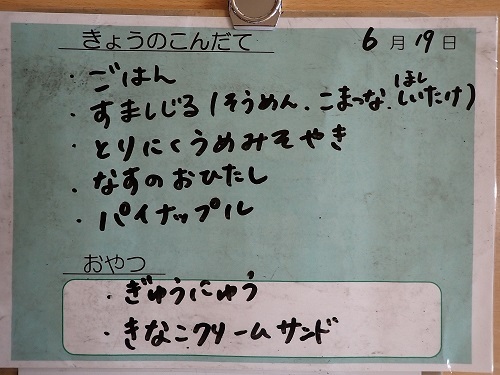 きょうのこんだて 6月19日
・ごはん
・すましじる(そうめん、こまつな、ほししいたけ)
・とりにくうめみそやき
・なすのおひたし
・パイナップル
おやつ
・ぎゅうにゅう
・きなこクリームサンド